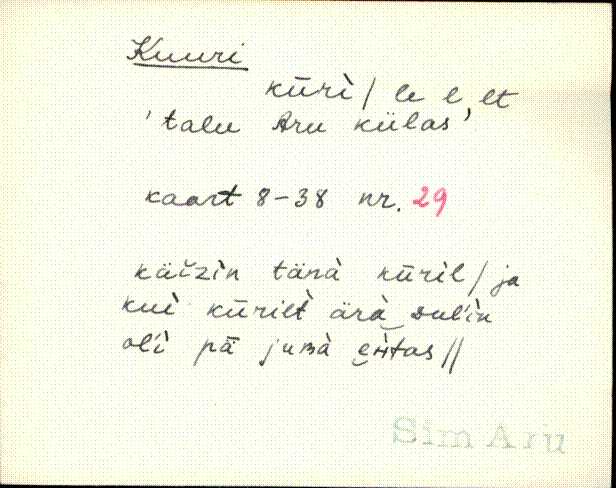 Kuuri
kūrì / le l, lt
'talu Aru külas'
kaart 8-38 nr. 29
käizìn tänà kūrìl / ja
kui kūrilt ärà tulin
oĺì pǟ jumà
Sim Aru